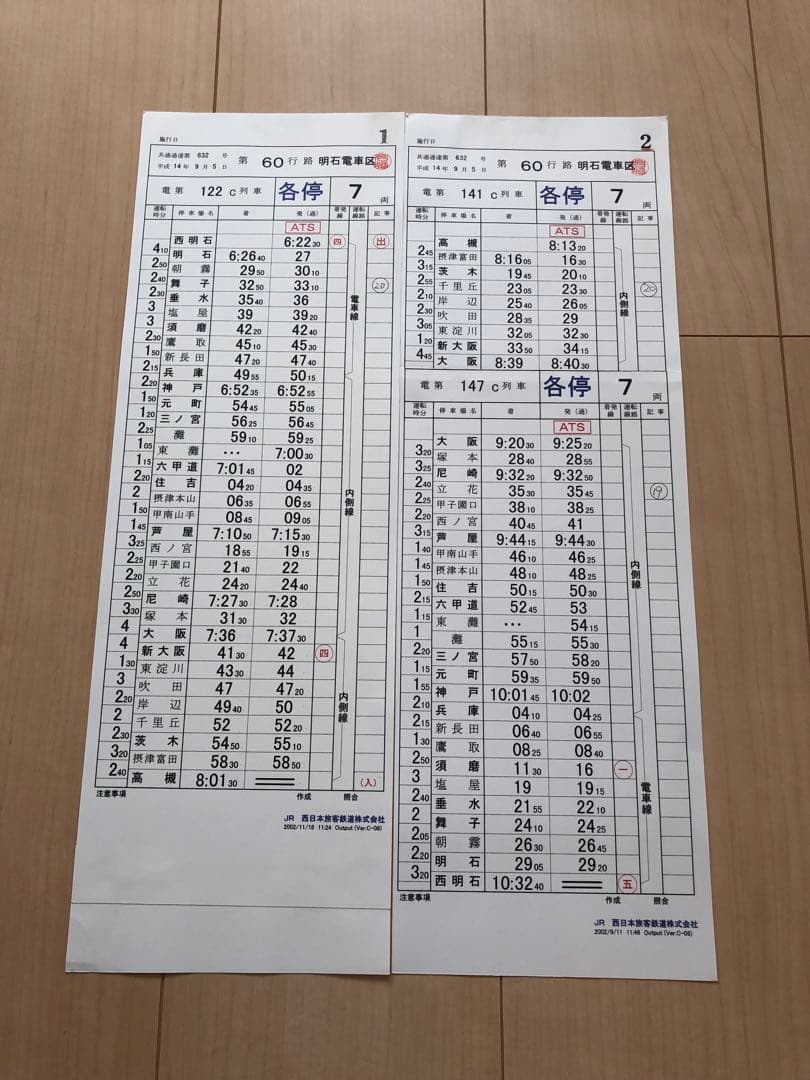 施行日
1
共通通達第 632 号
平成 14年 9月 5日
第 60 行路 明石電車区
電第 122 C 列車 各停 7 両
運転時分 停車場名 着 発(通) 着発線 運転線路 記事
ATS
西明石 6:22 30 四 出
4 10
明石 6:26 40 27
2 50
朝霧 29 50 30 10
2 40
舞子 32 50 33 10 20
2 30
垂水 35 40 36
3
塩屋 39 39 20
3
須磨 42 20 42 40
2 30
鷹取 45 10 45 30
1 50
新長田 47 20 47 40
2 15
兵庫 49 55 50 15
2 20
神戸 6:52 35 6:52 55
1 50
元町 54 45 55 05
1 20
三ノ宮 56 25 56 45
2 25
灘 59 10 59 25
1 05
東灘 ・・・ 7:00 30
1 15
六甲道 7:01 45 02
2 20
住吉 04 20 04 35
2
摂津本山 06 35 06 55
1 50
甲南山手 08 45 09 05
1 45
芦屋 7:10 50 7:15 30
3 25
西ノ宮 18 55 19 15
2 25
甲子園口 21 40 22
2 20
立花 24 20 24 40
2 50
尼崎 7:27 30 7:28
3 30
塚本 31 30 32
4
大阪 7:36 7:37 30
4
新大阪 41 30 42 四
1 30
東淀川 43 30 44
3
吹田 47 47 20
2 20
岸辺 49 40 50
2
千里丘 52 52 20
2 30
茨木 54 50 55 10
3 20
摂津富田 58 30 58 50
2 40
高槻 8:01 30 (入)
電車線
内側線
内側線
注意事項 作成 照合
JR 西日本旅客鉄道株式会社
2002/11/18 11:24 Output(Ver.C-08)
施行日
2
共通通達第 632 号
平成 14年 9月 5日
第 60 行路 明石電車区
電第 141 C 列車 各停 7 両
運転時分 停車場名 着 発(通) 着発線 運転線路 記事
ATS
高槻 8:13 20
2 45
摂津富田 8:16 05 16 30
3 15
茨木 19 45 20 10
2 55
千里丘 23 05 23 30 20
2 10
岸辺 25 40 26 05
2 30
吹田 28 35 29
3 05
東淀川 32 05 32 30
1 20
新大阪 33 50 34 15
4 45
大阪 8:39 8:40 30
内側線
電第 147 C 列車 各停 7 両
運転時分 停車場名 着 発(通) 着発線 運転線路 記事
ATS
大阪 9:20 30 9:25 20
3 20
塚本 28 40 28 55
3 25
尼崎 9:32 20 9:32 50
2 40
立花 35 30 35 45 19
2 25
甲子園口 38 10 38 25
2 20
西ノ宮 40 45 41
3 15
芦屋 9:44 15 9:44 30
1 40
甲南山手 46 10 46 25
1 45
摂津本山 48 10 48 25
1 50
住吉 50 15 50 30
2 15
六甲道 52 45 53
1 15
東灘 ・・・ 54 15
1
灘 55 15 55 30
2 20
三ノ宮 57 50 58 20
1 15
元町 59 35 59 50
1 55
神戸 10:01 45 10:02
2 10
兵庫 04 10 04 25
2 15
新長田 06 40 06 55
1 30
鷹取 08 25 08 40
2 50
須磨 11 30 16 一
3
塩屋 19 19 15
2 40
垂水 21 55 22 10
2
舞子 24 10 24 25
2 05
朝霧 26 30 26 45
2 20
明石 29 05 29 20
3 20
西明石 10:32 40 五
内側線
電車線
注意事項 作成 照合
JR 西日本旅客鉄道株式会社
2002/9/11 11:48 Output(Ver.C-08)